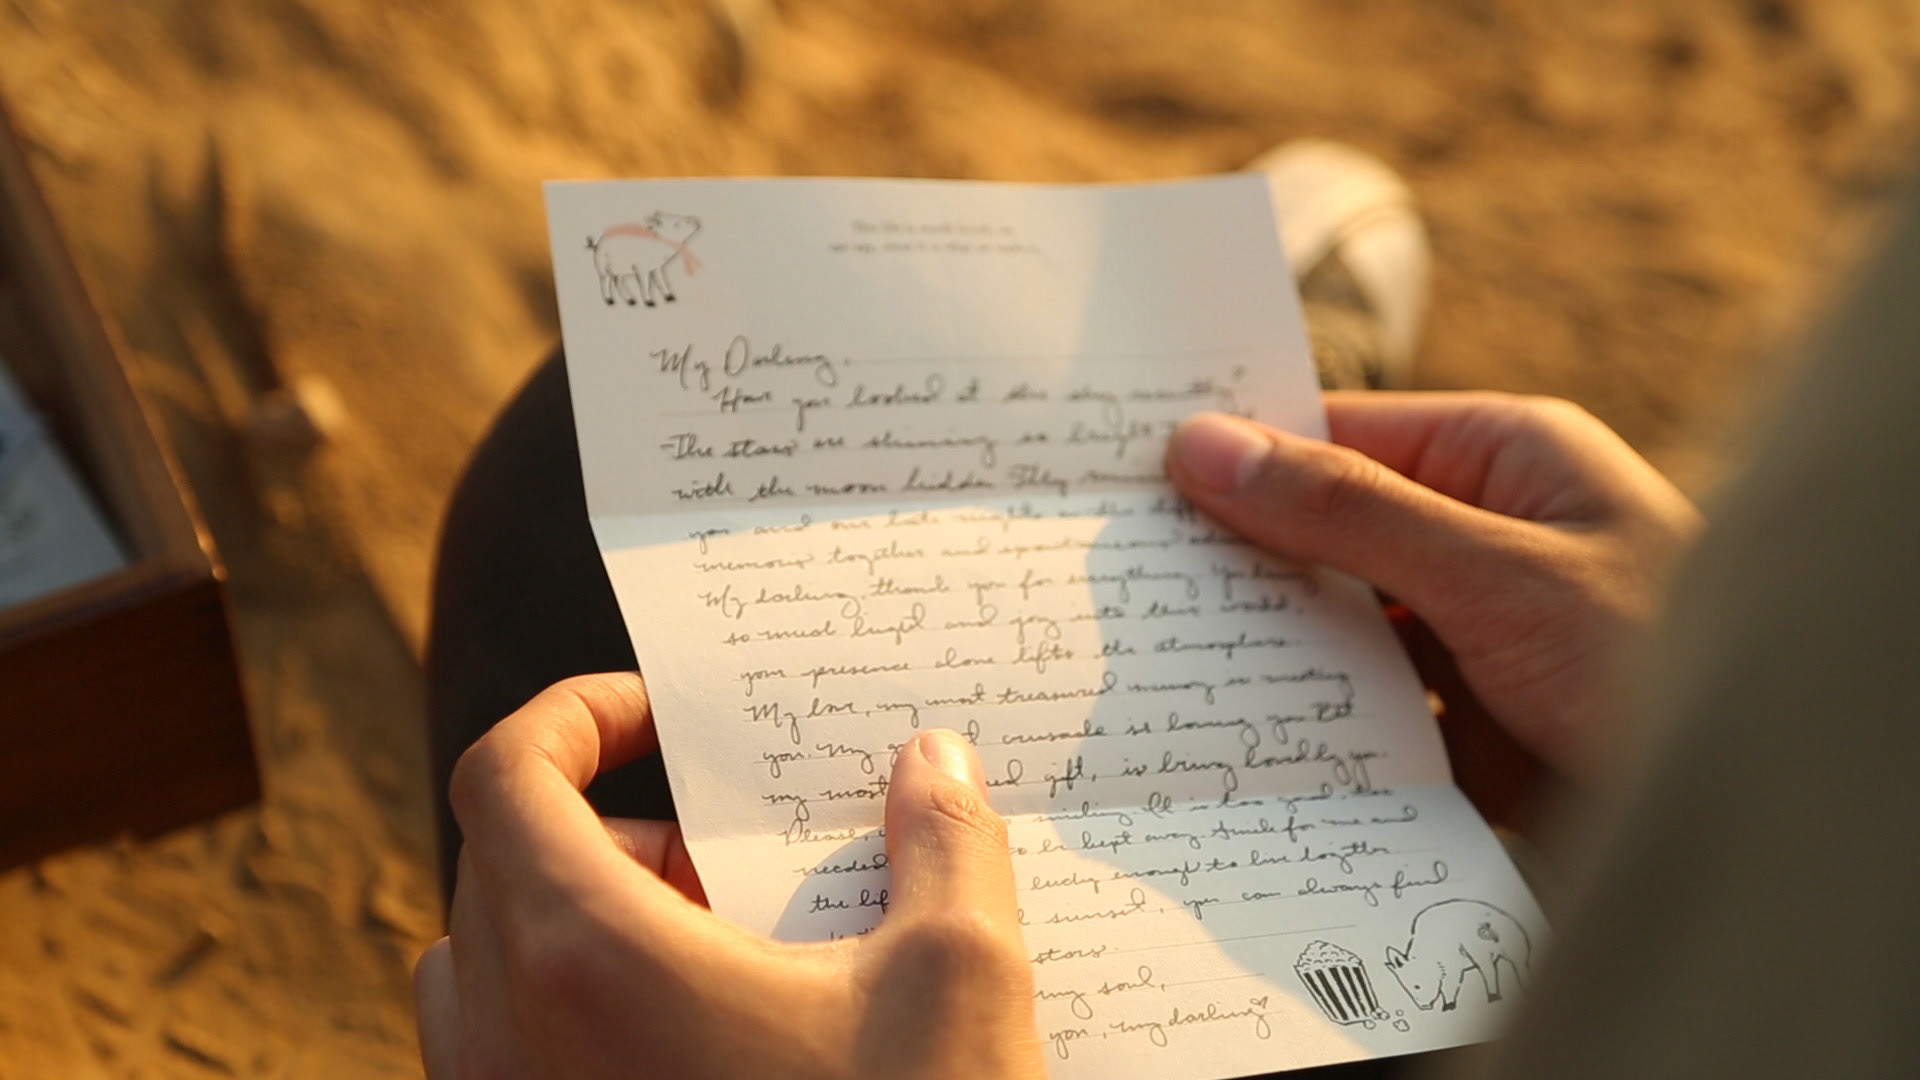 My Darling,
Have you looked at the sky recently?
The stars are shining so bright
with the moon hidden They
you and our late nights on the
memories together and spontaneous
My darling, thank you for everything You bring
so much light and joy into this world.
your presence alone lifts the atmosphere
My love, my most treasured memory is meeting
you. My crusade is loving you But
my most gift, is being loved by you.
Please, smiling. It is too good, too
needed to be kept away. Smile for me and
the lucky enough to live together
sunset, you can always find
stars.
my soul,
you, my darling